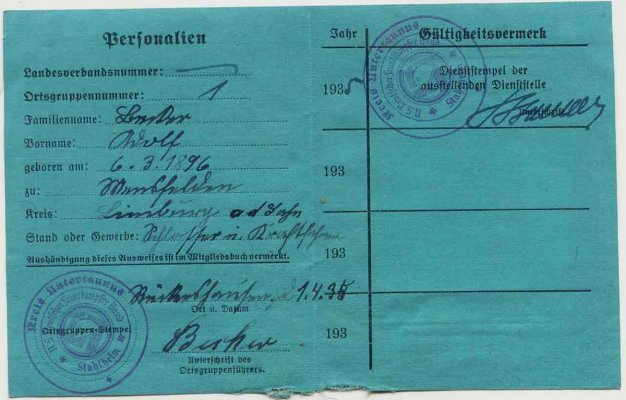 Personalien
Landesverbandsnummer:
Ortsgruppennummer: 1
Familienname: Becker
Vorname: Adolf
geboren am: 6.3.1896
zu: Mensfelden
Kreis: Limburg a d Lahn
Stand oder Gewerbe: Schlosser u.
Aushändigung dieses Ausweises ist im Mitgliedsbuch vermerkt.
Kreis Untertaunus
Stahlhelm
Ortsgruppen-Stempel
1.4.35
Ort u. Datum
Becker
Unterschrift des
Ortsgruppenführers.
Jahr
Gültigkeitsvermerk
1935
Dienststempel der
ausstellenden Dienststelle
Kreis Untertaunus
193
193
193